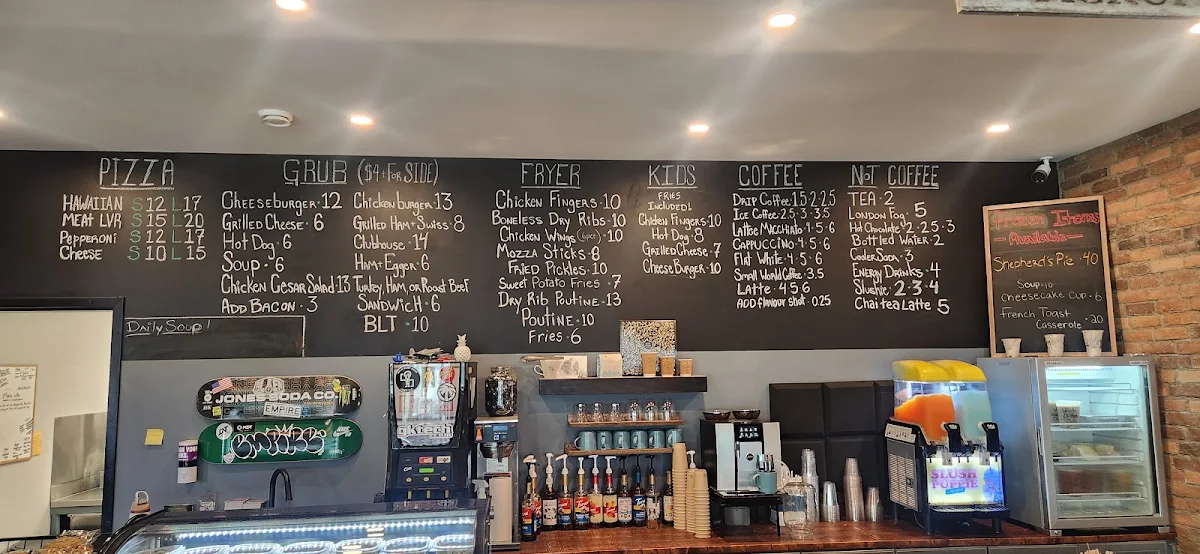 PIZZA
HAWAIIAN S 12 L 17
MEAT LVR S 15 L 20
PEPPERONI S 12 L 17
CHEESE S 10 L 15
GRUB ($4+ FOR SIDE)
Cheeseburger · 12
Grilled Cheese · 6
Hot Dog · 6
Soup · 6
Chicken Cesar Salad · 13
Add Bacon · 3
Chicken burger · 13
Grilled Ham + Swiss · 8
Clubhouse · 14
Ham + Egger · 6
Turkey, Ham, or Roast Beef
Sandwich · 6
BLT · 10
FRYER
Chicken Fingers · 10
Boneless Dry Ribs · 10
Chicken Wings · 10
Mozza Sticks · 8
Fried Pickles · 10
Sweet Potato Fries · 7
Dry Rib Poutine · 13
Poutine · 10
Fries · 6
KIDS
FRIES
INCLUDED!
Chicken Fingers · 10
Hot Dog · 8
Grilled Cheese · 7
Cheese Burger · 10
COFFEE
Drip Coffee · 1.5 · 2 · 2.5
Ice Coffee · 2.5 · 3 · 3.5
Latte Macchiato · 4 · 5 · 6
Cappuccino · 4 · 5 · 6
Flat White · 4 · 5 · 6
Small World Coffee · 3.5
Latte · 4 · 5 · 6
Add flavour shot · 0.25
NOT COFFEE
TEA · 2
London Fog · 5
Hot Chocolate · 2 · 2.5 · 3
Bottled Water · 2
Cooler Soda · 3
Energy Drinks · 4
Slushie · 2 · 3 · 4
Chai tea Latte · 5
Frozen Items
Available
Shepherd's Pie · 40
Soup · 10
Cheesecake Cup · 6
French Toast
Casserole · 20
Daily Soup!
JONES SODA CO.
EMPIRE
gktech
SLUSH
PUPPIE